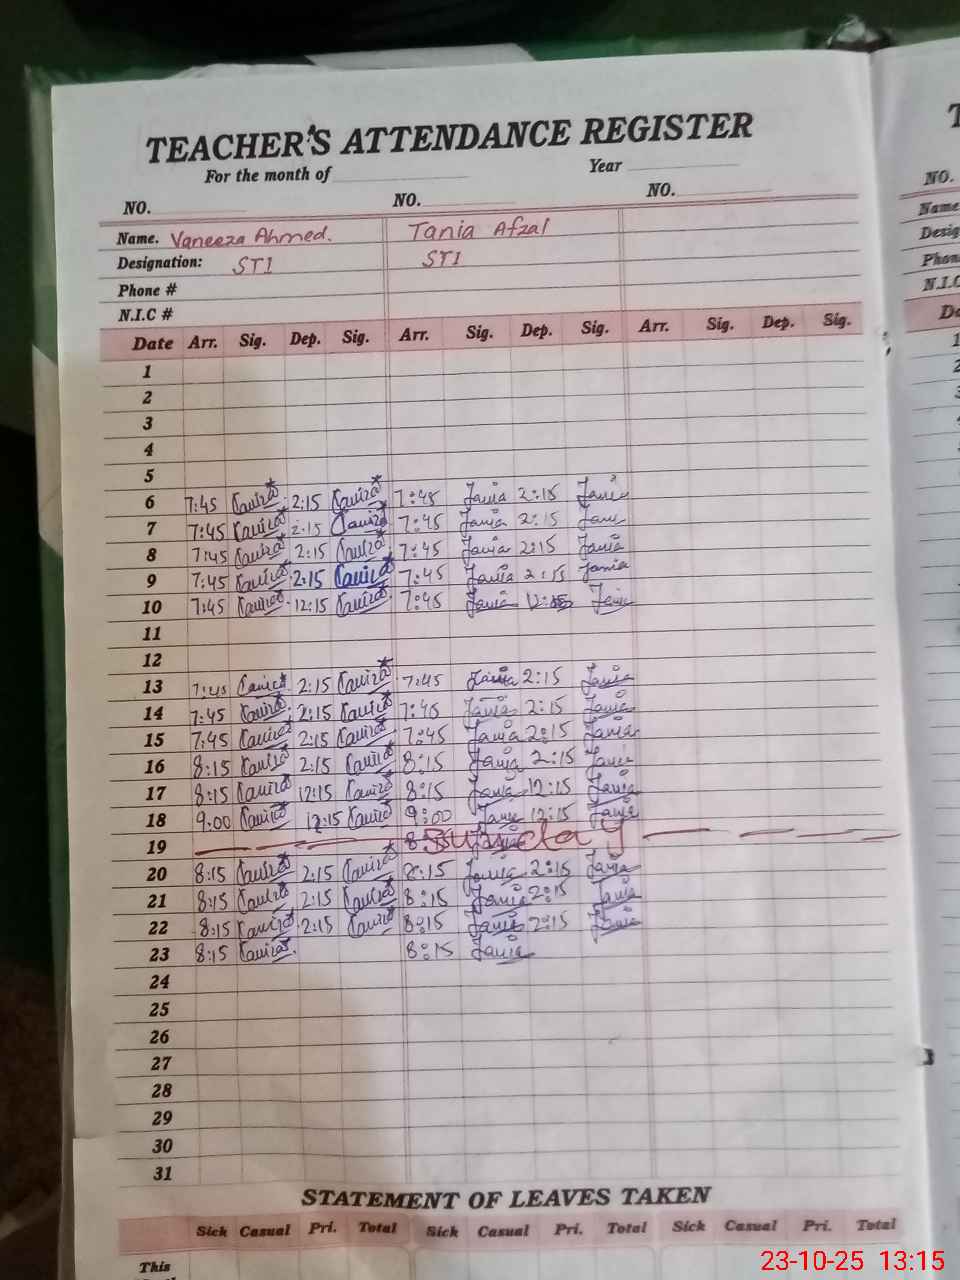 TEACHER'S ATTENDANCE REGISTER
For the month of Year
NO. NO. NO.
Name. Vaneeza Ahmed. Tania Afzal
Designation: STI STI
Phone #
N.I.C #
Date Arr. Sig. Dep. Sig. Arr. Sig. Dep. Sig. Arr. Sig. Dep. Sig.
1
2
3
4
5
6 7:45 2:15 7:45 Tania 2:15 Tania
7 7:45 2:15 7:45 Tania 2:15 Tania
8 7:45 2:15 7:45 Tania 2:15 Tania
9 7:45 2:15 7:45 Tania 2:15 Tania
10 7:45 12:15 7:45 Tania 12:15 Tania
11
12
13 7:45 2:15 7:45 Tania 2:15 Tania
14 7:45 2:15 7:45 Tania 2:15 Tania
15 7:45 2:15 7:45 Tania 2:15 Tania
16 8:15 2:15 8:15 Tania 2:15 Tania
17 8:15 12:15 8:15 Tania 12:15 Tania
18 9:00 12:15 9:00 Tania 12:15 Tania
19 Sunday
20 8:15 2:15 8:15 Tania 2:15 Tania
21 8:15 2:15 8:15 Tania 2:15 Tania
22 8:15 2:15 8:15 Tania 2:15 Tania
23 8:15 8:15 Tania
24
25
26
27
28
29
30
31
STATEMENT OF LEAVES TAKEN
Sick Casual Pri. Total Sick Casual Pri. Total Sick Casual Pri. Total
This
23-10-25 13:15